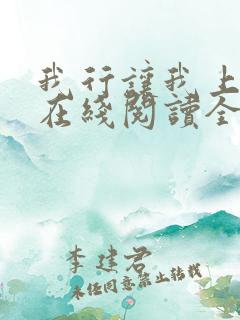 我行讓我上
在綫閱讀全
李建君
未经同意禁止转载